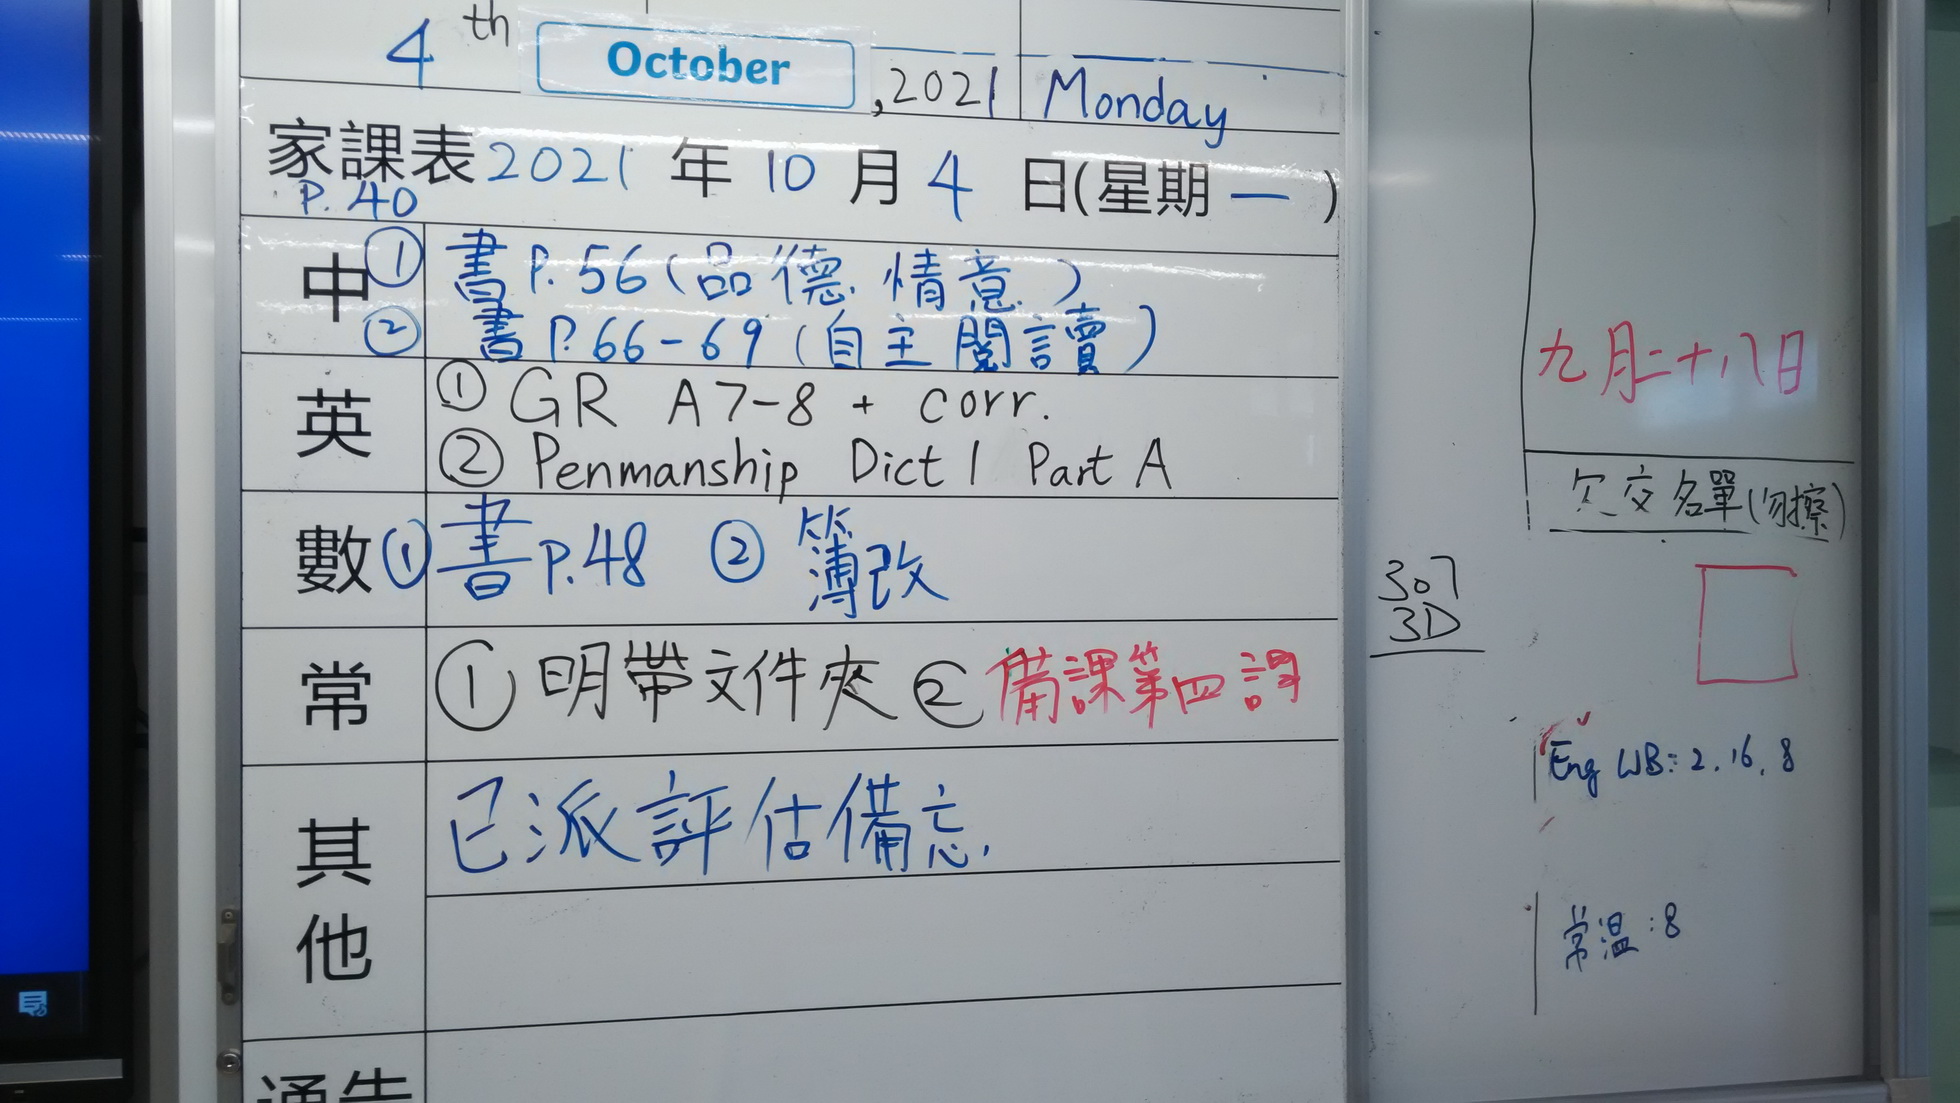 4th October, 2021 Monday
家課表 2021 年 10 月 4 日(星期一)
P.40
中 ① 書P.56(品德情意)
② 書P.66-69(自主閱讀)
英 ① GR A7-8 + corr.
② Penmanship Dict 1 Part A
數 ① 書p.48 ② 簿改
常 ① 明帶文件夾 ② 備課第四課
其他 已派評估備忘.
通告
307
3D
九月二十八日
欠交名單(勿擦)
Eng WB: 2, 16, 8
常溫:8